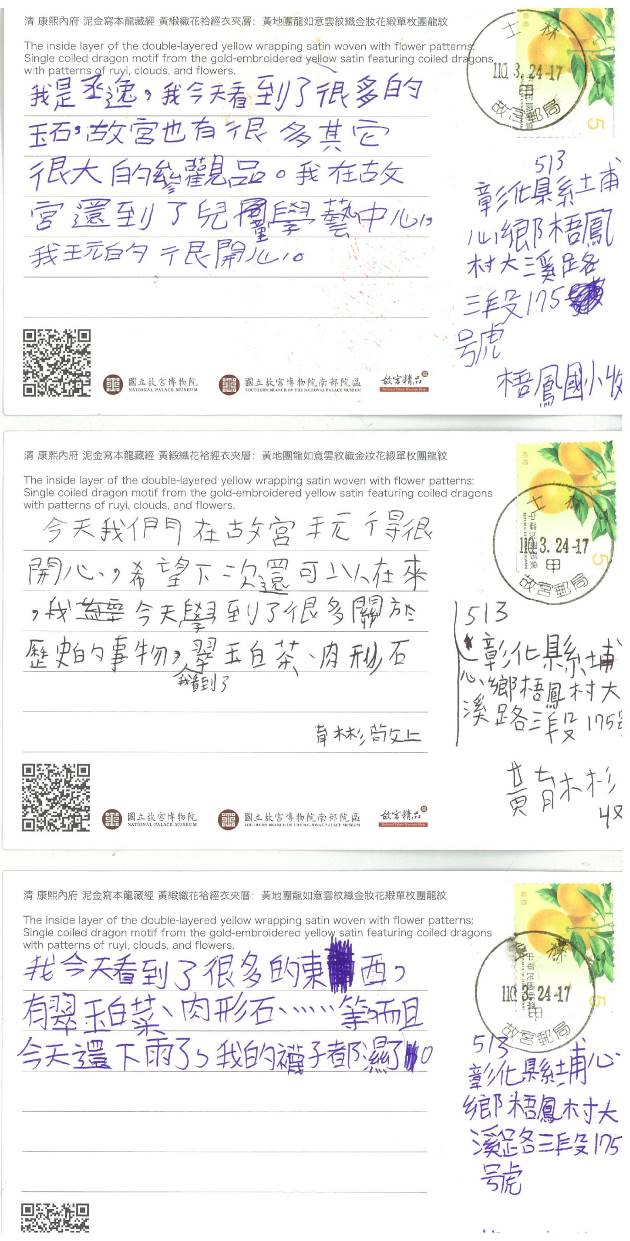 清 康熙內府 泥金寫本龍藏經 黃緞織花袷經衣夾層：黃地團龍如意雲紋織金妝花緞單枚團龍紋
The inside layer of the double-layered yellow wrapping satin woven with flower patterns:
Single coiled dragon motif from the gold-embroidered yellow satin featuring coiled dragons
with patterns of ruyi, clouds, and flowers.
我是丞逸，我今天看到了很多的
玉石，故宮也有很多其它
很大的參觀品。我在故
宮還到了兒童學藝中心，
我玩的很開心。
國立故宮博物院
NATIONAL PALACE MUSEUM
國立故宮博物院南部院區
SOUTHERN BRANCH OF THE NATIONAL PALACE MUSEUM
故宮精品
士林
110.3.24-17
甲
故宮郵局
5
513
彰化縣埔
心鄉梧鳳
村大溪路
三段175
号虎
梧鳳國小收
清 康熙內府 泥金寫本龍藏經 黃緞織花袷經衣夾層：黃地團龍如意雲紋織金妝花緞單枚團龍紋
The inside layer of the double-layered yellow wrapping satin woven with flower patterns:
Single coiled dragon motif from the gold-embroidered yellow satin featuring coiled dragons
with patterns of ruyi, clouds, and flowers.
今天我們在故宮玩得很
開心，希望下次還可以在來
，我今天學到了很多關於
歷史的事物，我看到了翠玉白菜、肉形石
育彬敬上
國立故宮博物院
NATIONAL PALACE MUSEUM
國立故宮博物院南部院區
SOUTHERN BRANCH OF THE NATIONAL PALACE MUSEUM
故宮精品
士林
110.3.24-17
甲
故宮郵局
5
513
彰化縣埔
心鄉梧鳳村大
溪路三段175号
黃育彬
收
清 康熙內府 泥金寫本龍藏經 黃緞織花袷經衣夾層：黃地團龍如意雲紋織金妝花緞單枚團龍紋
The inside layer of the double-layered yellow wrapping satin woven with flower patterns:
Single coiled dragon motif from the gold-embroidered yellow satin featuring coiled dragons
with patterns of ruyi, clouds, and flowers.
我今天看到了很多的東西，
有翠玉白菜、肉形石……等，而且
今天還下雨了，我的襪子都濕了。
士林
110.3.24-17
甲
故宮郵局
5
513
彰化縣埔心
鄉梧鳳村大
溪路三段175
号虎